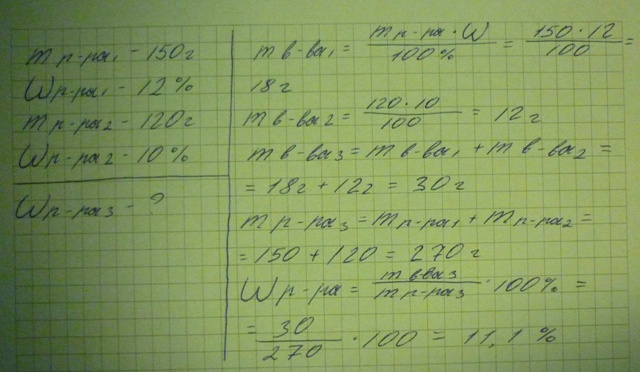 m р-ра₁ - 150г
W р-ра₁ - 12 %
m р-ра₂ - 120г
W р-ра₂ - 10 %
W р-ра₃ - ?
m в-ва₁ = m р-ра · W / 100% = 150 · 12 / 100 =
18г
m в-ва₂ = 120 · 10 / 100 = 12 г
m в-ва₃ = m в-ва₁ + m в-ва₂ =
= 18г + 12г = 30г
m р-ра₃ = m р-ра₁ + m р-ра₂ =
= 150 + 120 = 270 г
W р-ра = m вва₃ / m р-ра₃ · 100% =
= 30 / 270 · 100 = 11,1 %